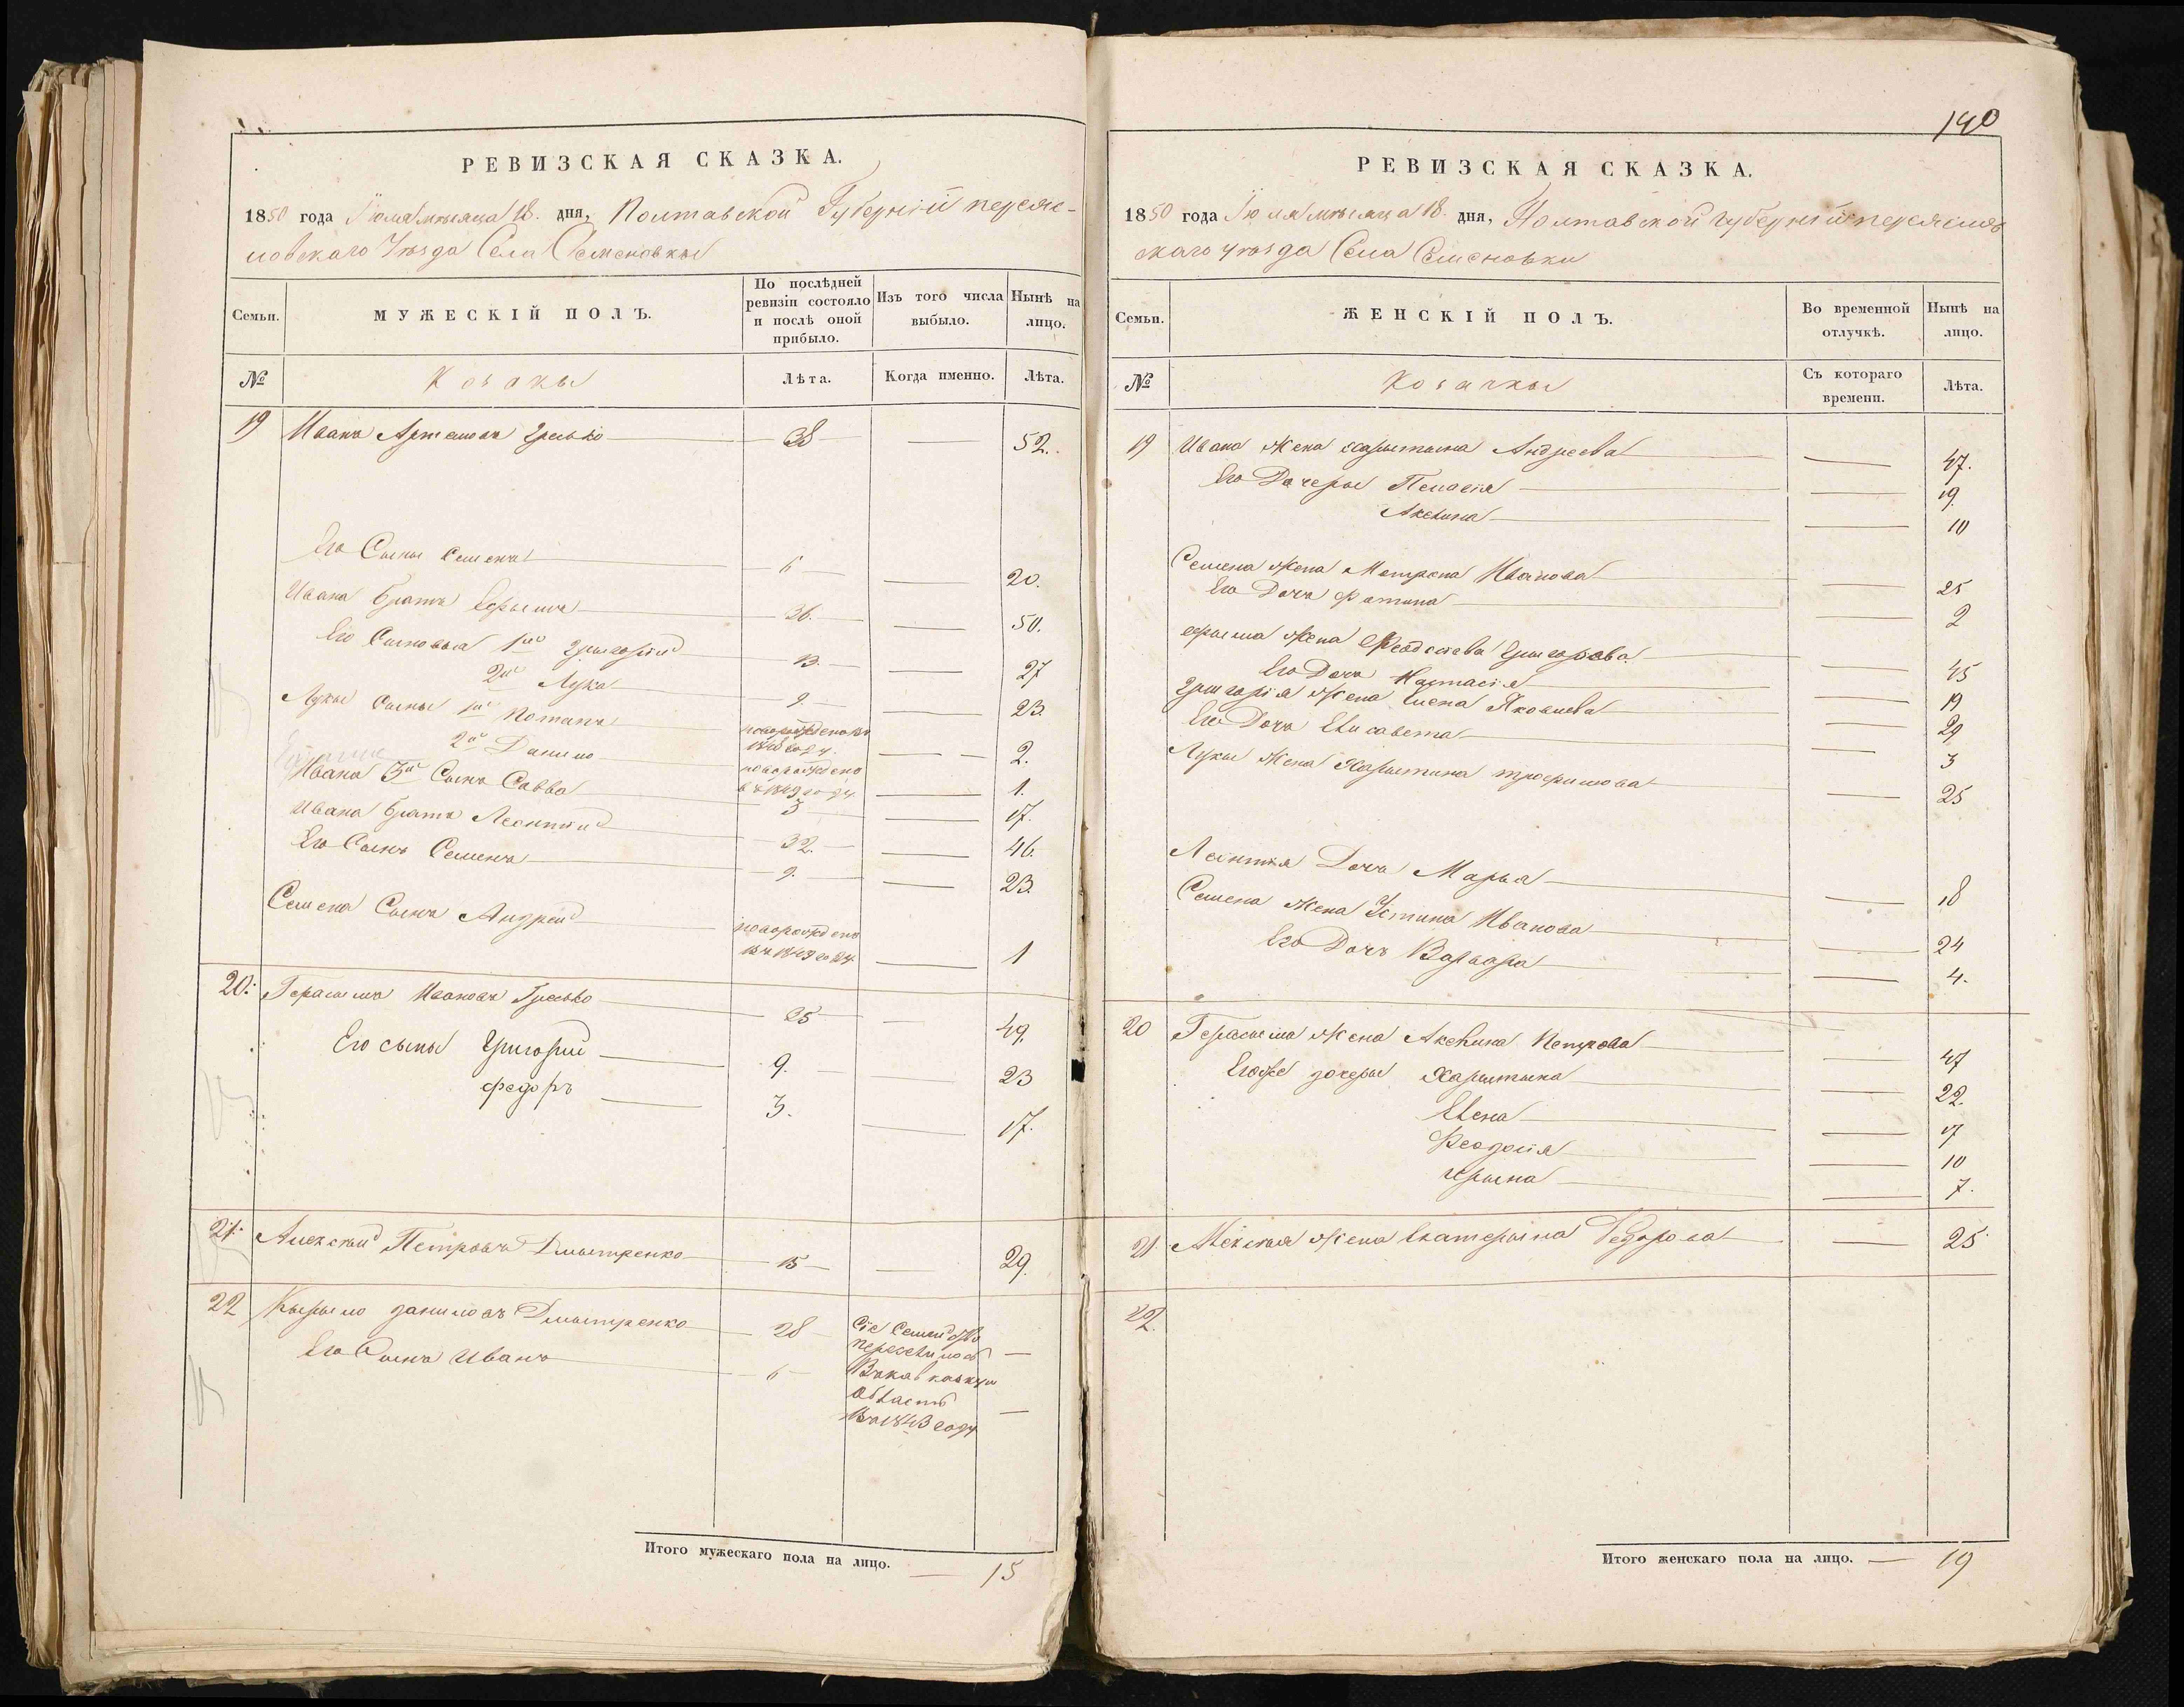 190
РЕВИЗСКАЯ СКАЗКА.
1850 года Іюля мѣсяца 18. дня, Полтавской Губерніи переяс-
ловскаго Уѣзда Села Семеновки
Семьи.
МУЖЕСКІЙ ПОЛЪ.
По послѣдней ревизіи состояло и послѣ оной прибыло.
Изъ того числа выбыло.
Нынѣ на лицо.
№
Козаки
Лѣта.
Когда именно.
Лѣта.
19 Иванъ Артемовъ 38 — 52.
Его Сынъ Семенъ 6 — 20.
Ивана братъ Ефимъ 36. — 50.
Его Сыновья 1й Григорій 13. — 27
2й Лука 9. — 23.
Луки Сыны 1й Потапъ новорожденъ — 2.
2й Данило новорожденъ въ 1849 году — 1.
Ивана 3й Сынъ Савва 3 — 17.
Ивана братъ Леонтій 32. — 46.
Его Сынъ Семенъ 9. — 23.
Семена Сынъ Андрей новорожденъ въ 1849 году — 1
20. Герасимъ Ивановъ 35 — 49.
Его сыны Григорій 9. — 23
Федоръ 3. — 17.
21. Алексѣй Петровъ Дмытренко 15 — 29.
22 Кырыло Даниловъ Дмытренко 28 —
Его Сынъ Иванъ 6 —
Сіе Семейство
переселилось
Въ кавказкую
область
въ 1843 году
Итого мужескаго пола на лицо. — 15
РЕВИЗСКАЯ СКАЗКА.
1850 года Іюля мѣсяца 18. дня, Полтавской губерніи переяслов
скаго уѣзда Села Семеновки
Семьи.
ЖЕНСКІЙ ПОЛЪ.
Во временной отлучкѣ.
Нынѣ на лицо.
№
Козачки
Съ котораго времени.
Лѣта.
19 Ивана Жена Харытына Андреева — 47.
Его Дочеры Пелагія — 19.
Аксинія — 10
Семена Жена Мотрона Иванова — 25
Его Дочь — 2
Ефима Жена Феодосіева Григорьева — 45
Его Дочь Настасія — 19
Григорія Жена Елена Яковлева — 29
Его Дочь Елисавета — 3
Луки Жена Харытина Трофимова — 25
Леонтія Дочь Марья — 18
Семена Жена Устина Иванова — 24
Его Дочь Варвара — 4.
20 Герасима Жена Аксинія Петрова — 47
Егоже дочеры Харытына — 22.
Елена — 17
Феодосія — 10
Ирына — 7.
21. Алексѣя Жена Екатерына Федорова — 25
22.
Итого женскаго пола на лицо. — 19